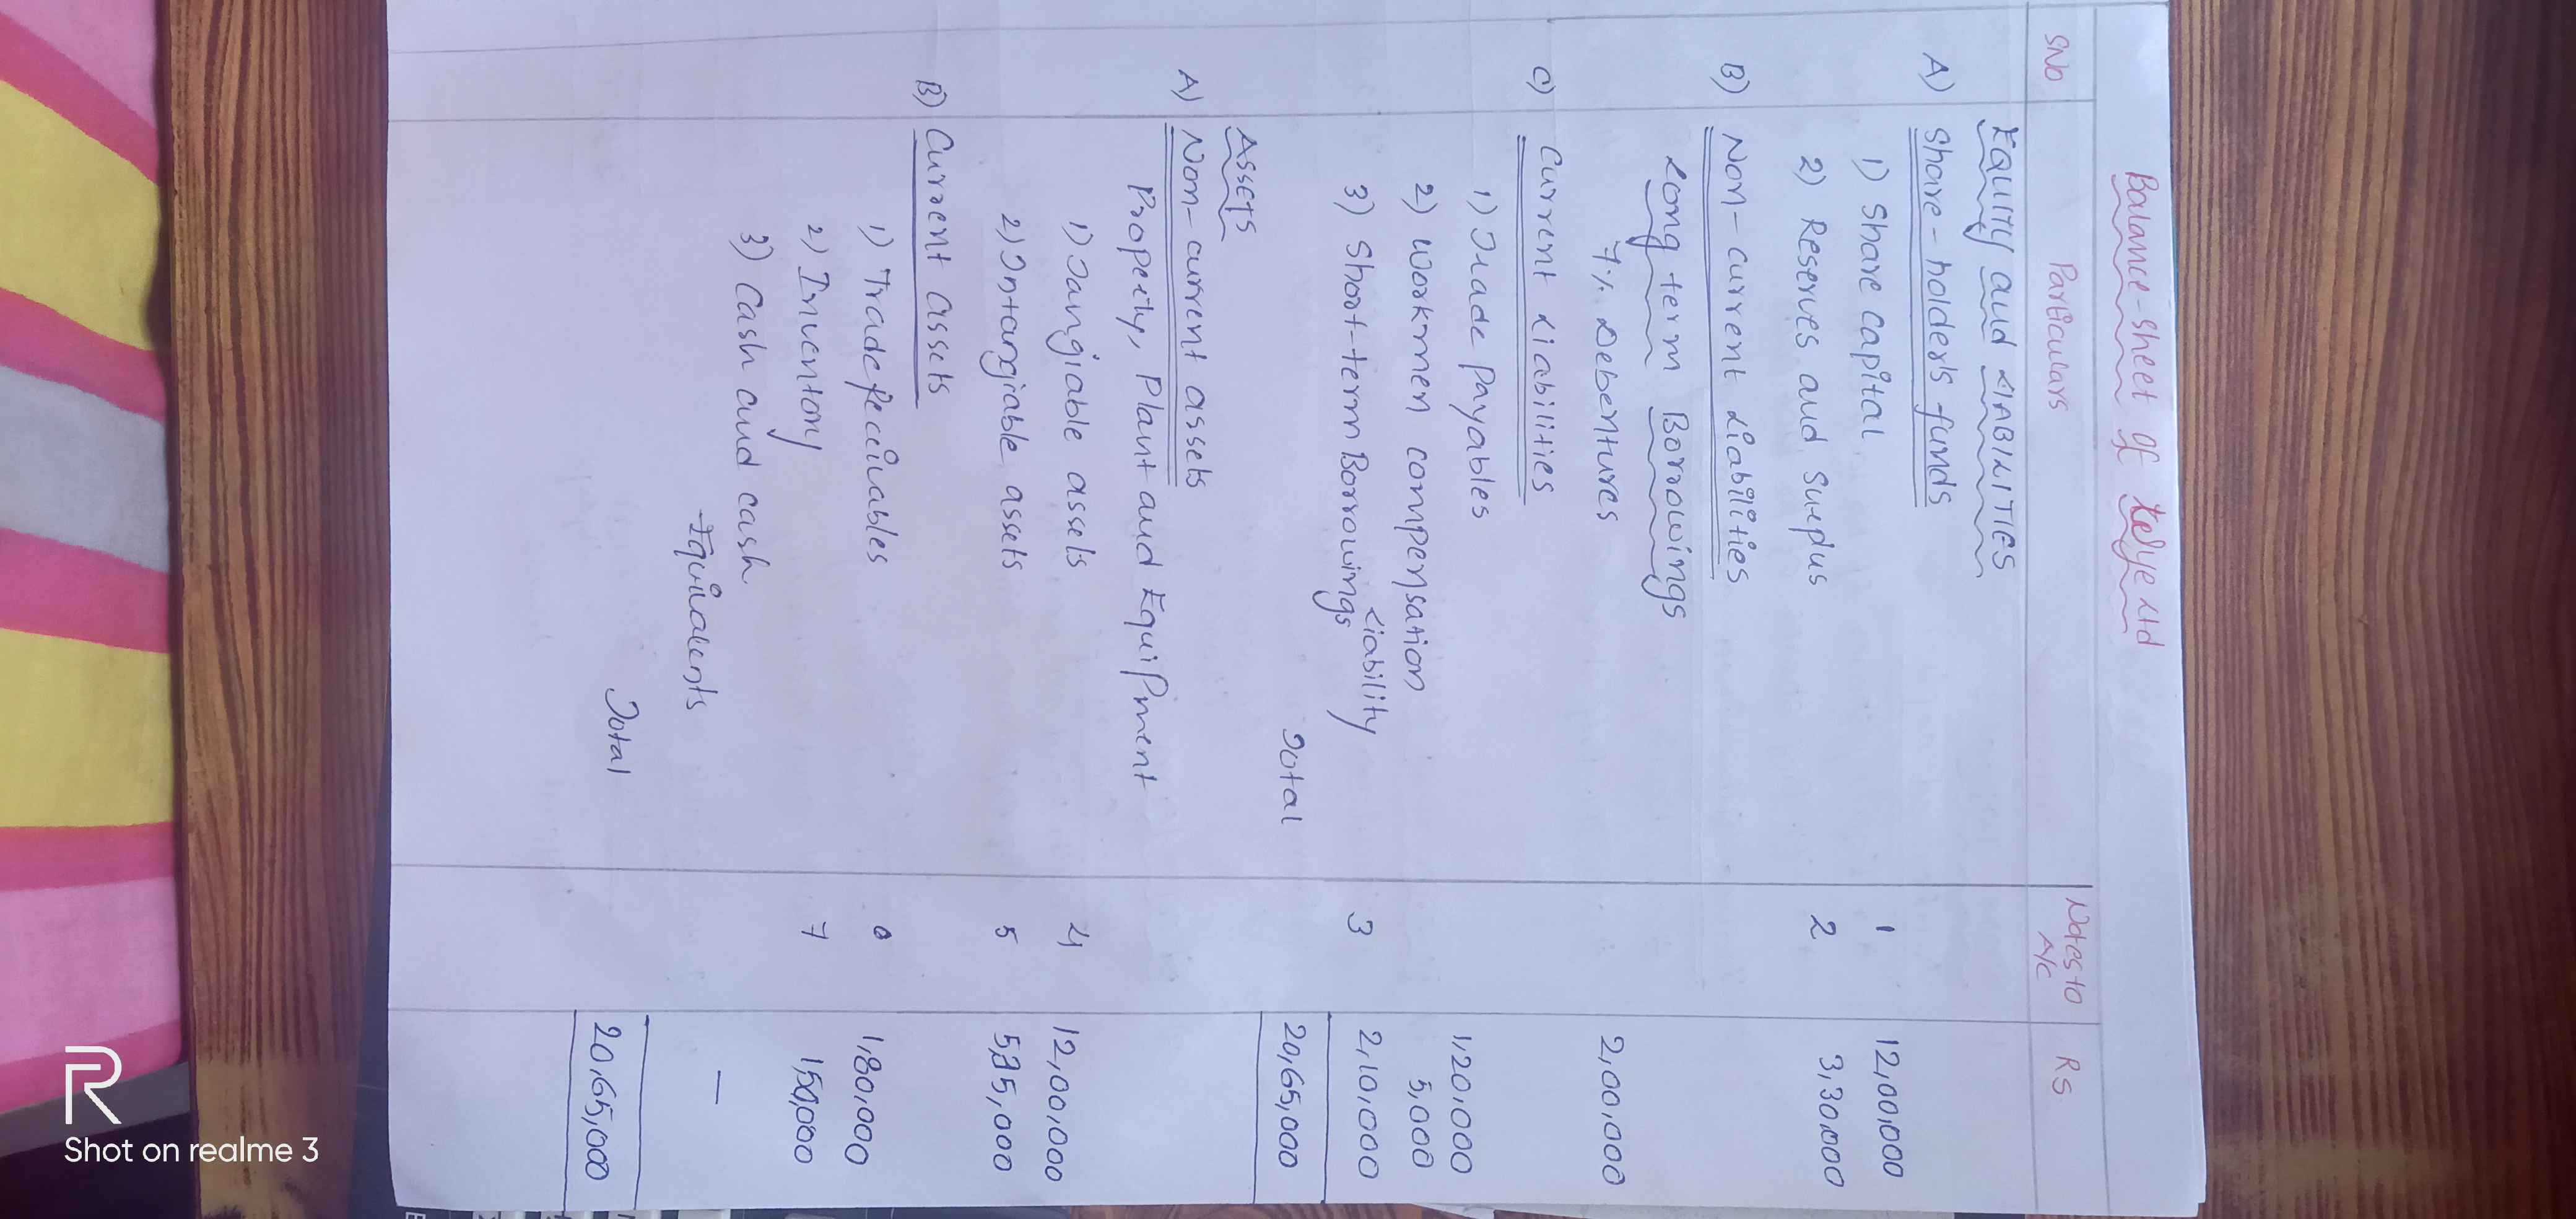 Balance-sheet of Ltd
SNo Particulars Notes to A/c Rs
EQUITY and LIABILITIES
A) Share-holders funds
1) Share capital 1 12,00,000
2) Reserves and Surplus 2 3,30,000
B) Non-current Liabilities
Long term Borrowings
7% Debentures 2,00,000
C) Current Liabilities
1) Trade Payables 1,20,000
2) Workmen compensation 5,000
Liability
3) Short-term Borrowings 3 2,10,000
Total 20,65,000
ASSETS
A) Non-current assets
Property, Plant and Equipment
1) Tangiable assets 4 12,00,000
2) Intangiable assets 5 5,35,000
B) Current assets
1) Trade Receivables 1,80,000
2) Inventory 7 1,50,000
3) Cash and cash
Equivalents —
Total 20,65,000
R
Shot on realme 3